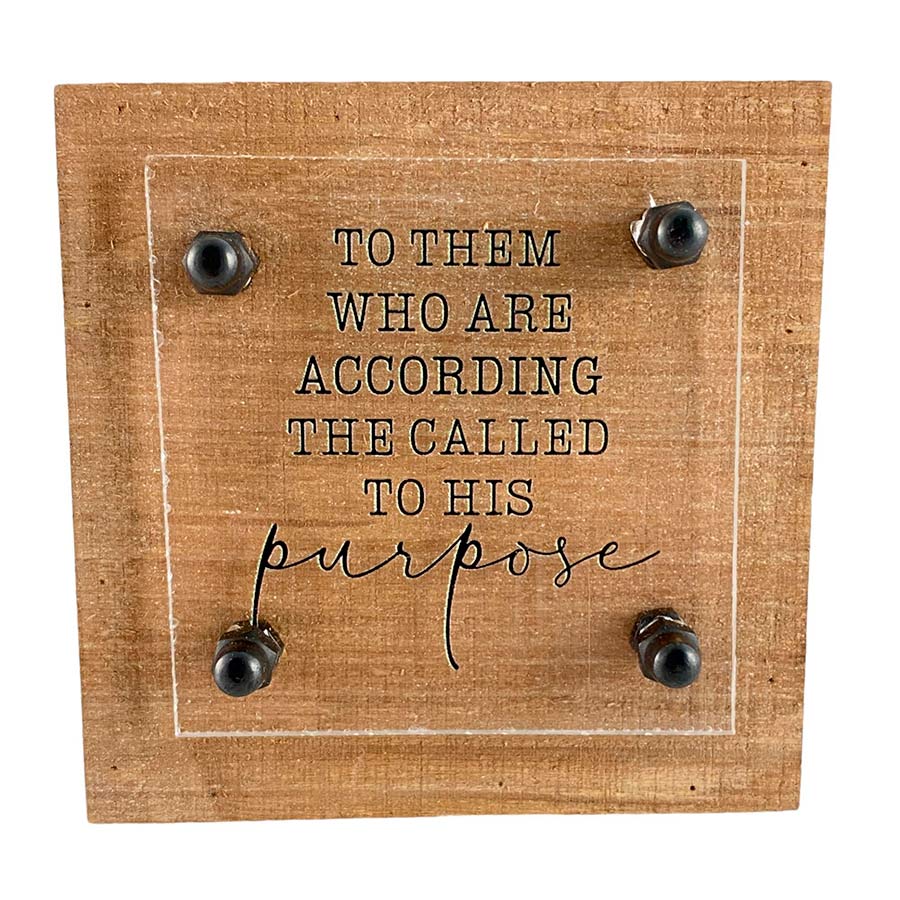 TO THEM
WHO ARE
ACCORDING
THE CALLED
TO HIS
purpose